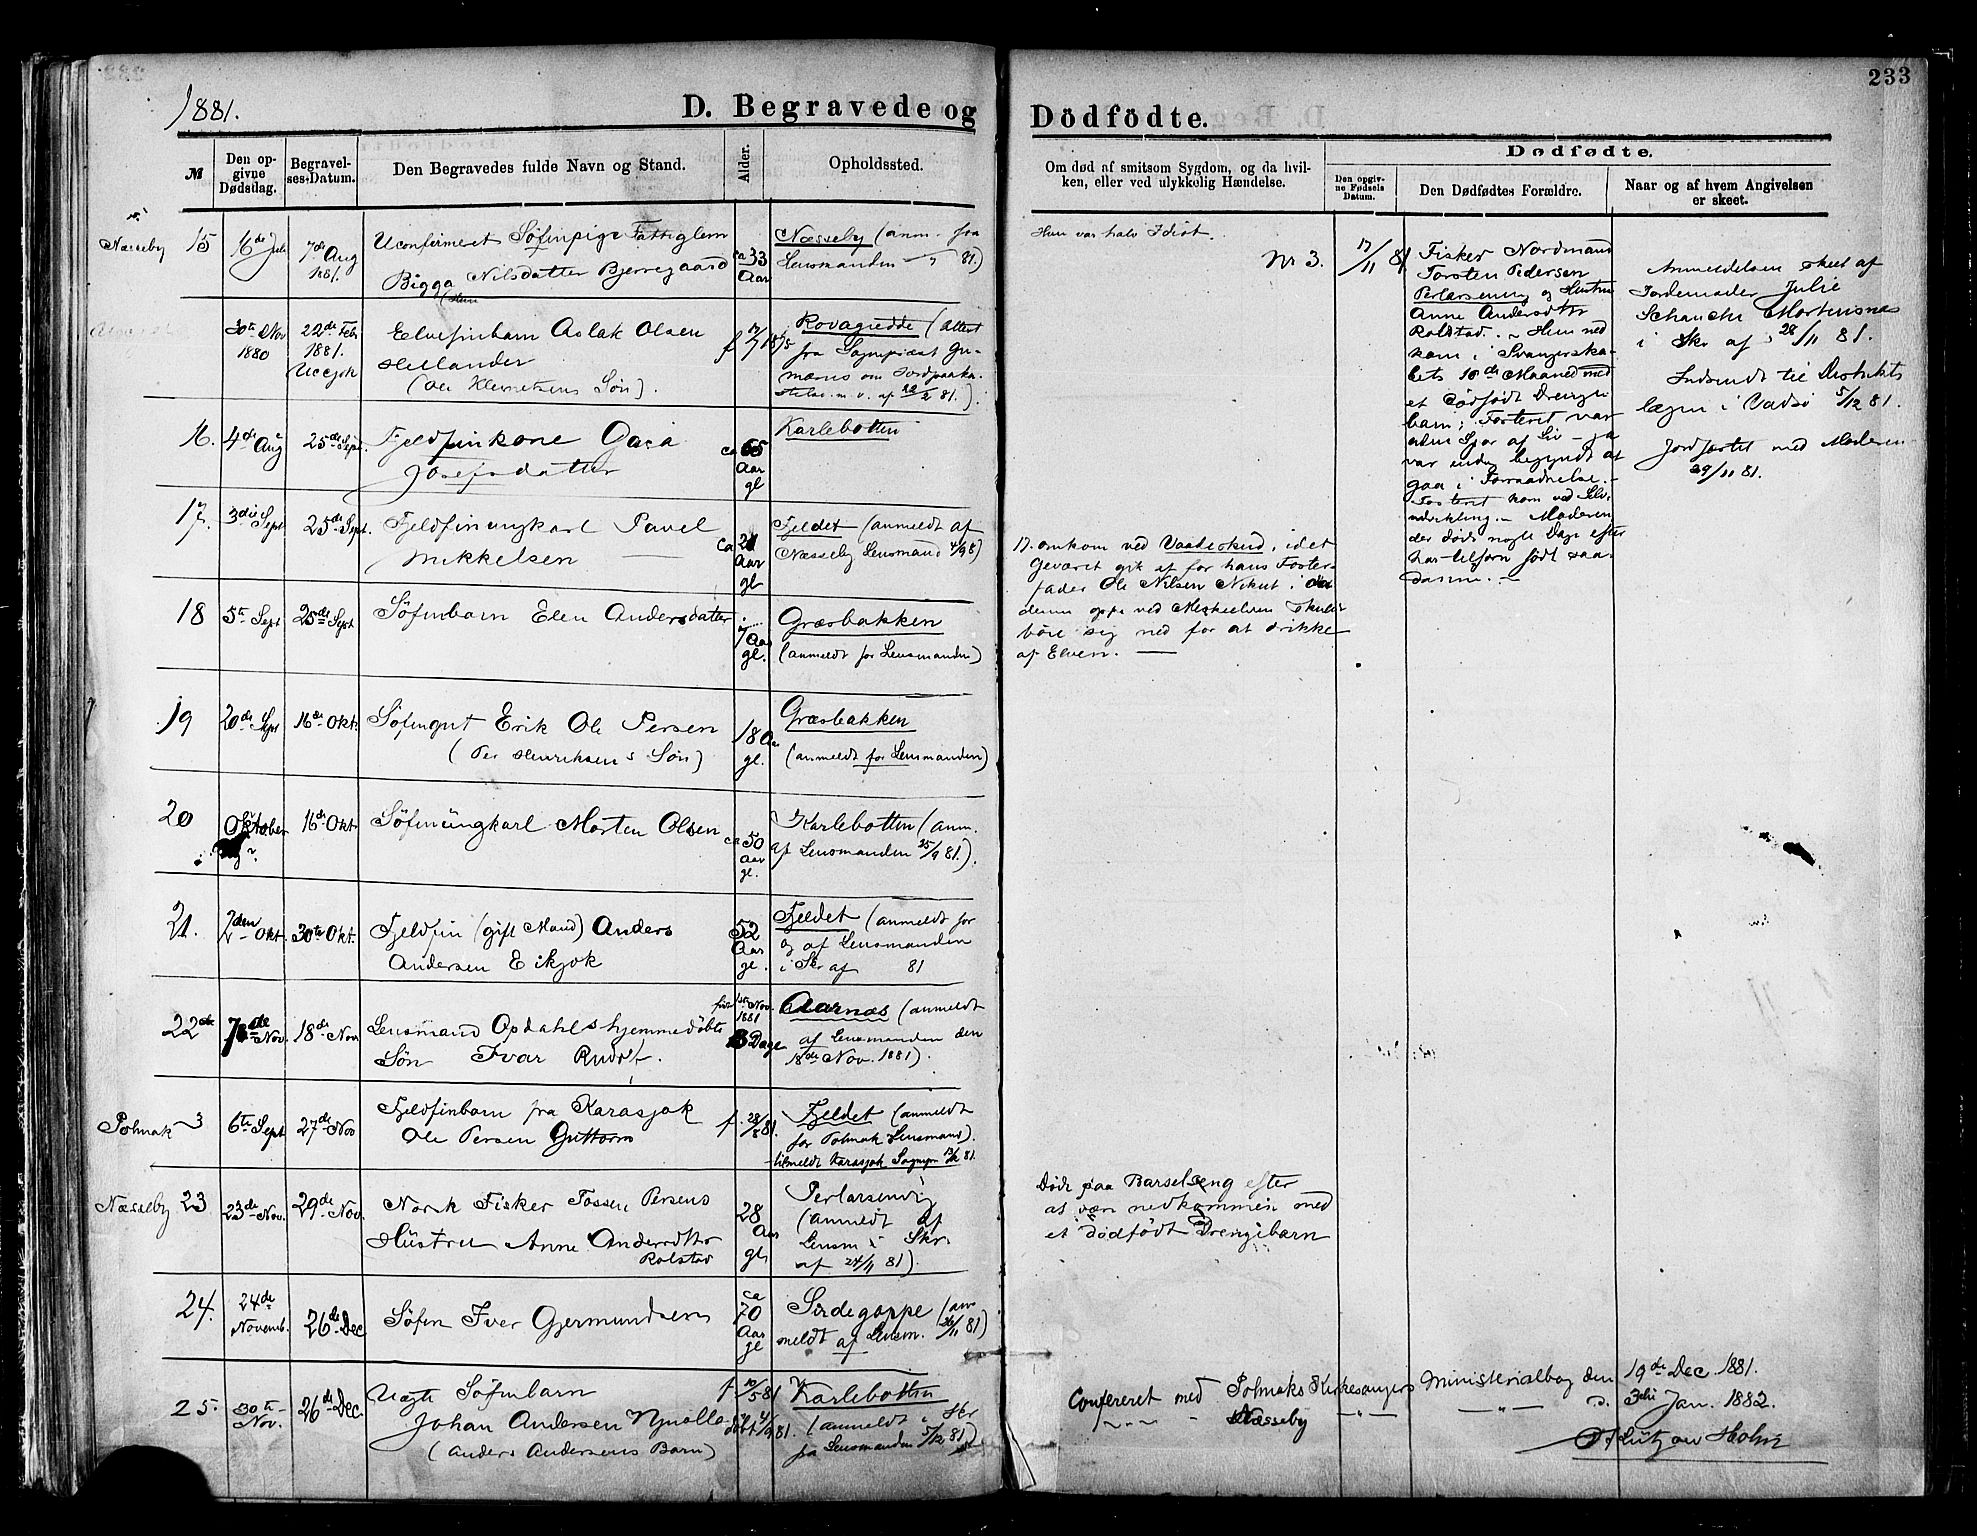 233
1881.
D. Begravede og Dödfödte.
№
Den opgivne Dødsdag.
Begravelses-Datum.
Den Begravedes fulde Navn og Stand.
Alder.
Opholdssted.
Om død af smitsom Sygdom, og da hvilken, eller ved ulykkelig Hændelse.
Dødfødte.
Den opgivne Fødsels Datum.
Den Dødfødtes Forældre.
Naar og af hvem Angivelsen er skeet.
Næsseby 15
16de Juli
7de Aug 1881.
Uconfirmeret Söfinpige Fattiglem
Bigga Nilsdatter Bjerregaard
ca 33 Aar
Næsseby (anm. fra
Lensmanden 81.)
Hun var halv Idiot.
30te Nov 1880
22de Febr 1881.
Elvefinbarn Aslak Olsen
Hellander
(Ole Søn).
Rovagiedde (Attest
fra Sognepræst
om Jordpaaka-
stelse m. v. af 22/2 81.)
16.
4de Aug
25de Sept.
Fjeldfinkone Gaia
Josefsdatter
ca 65 Aar gl
Karlebotten
17.
3die Sept
25de Sept.
Fjeldfinungkarl Pavel
Mikkelsen
ca 21 Aar gl
Fjeldet (anmeldt af
Næsseby Lensmand 4/9 81)
17. omkom ved Vaadeskud, idet
Geværet gik af for hans Foster-
fader Ole Nilsen Nikut, i
denne oppe ved Meskelven skulde
böie sig ned for at drikke
af Elven.
18
5te Sept
25de Sept
Söfinbarn Elen Andersdatter
7 Aar gl.
Græsbakken
(anmeldt for Lensmanden)
19
20de Sept
16de Okt.
Söfingut Erik Ole Persen
(Per Henriksens Sön)
18 Aar gl.
Græsbakken
(anmeldt for Lensmanden)
20
Oktober
16de Okt
Söfinungkarl Morten Olsen
ca 50 Aar gl.
Karlebotten (anm.
af Lensmanden 25/9 81.).
21.
2den Okt.
30te Okt.
Fjeldfin (gift Mand) Anders
Andersen Eikjok
52 Aar gl.
Fjeldet (anmeldt for
og af Lensmanden
i Skr af 81
22de
7de Nov.
18de Nov
Lensmand Opdahls hjemmedöbte
Sön Ivar Rudolf.
1ste Nov. 1881
8 Dage
Aarnæs (anmeldt
af Lensmanden den
18de Nov. 1881).
Polmak 3
6te Sept
27de Nov
Fjeldfinbarn fra Karasjok
Ole Persen Guttorm
f. 28/8 81.
Fjeldet (anmeldt
for Polmak Lensmand).
tilmeldt Karasjok Sognepr 81.
Næsseby 23
23de Nov.
29de Nov.
Norsk Fisker Tossen Persens
Hüstru Anne Andersdtr
Rolstad
28 Aar gl.
Perlarsenvig
(anmeldt af
Lensm i Skr.
af 24/11 81).
Döde paa Barselseng efter
at være nedkommen med
et dödfödt Drengebarn
24.
24de Novemb.
26de Dec.
Söfin Iver Gjermundsen
ca 70 Aar gl
Sirdegoppe (an-
meldt af Lensm. 26/11 81)
25.
30te Nov.
26de Dec.
Uægte Söfinbarn
Johan Andersen Njuolla
(Anders Andersens Barn)
f 10/5 81
döbt 4/9 81.
Karlebotten
(anmeldt i Skr
fra Lensmanden 5/12 81)
Nr 3.
17/11 81
Fisker Nordmand
Torsten Pedersen
Perlarsenvig og Hustru
Anne Andersdtr
Rolstad. Hun ned
kom i Svangerska-
bets 10de Maaned med
et dödfödt Drenge-
barn; Fosteret var
uden Spor af Liv – ja
var endog begyndt at
gaa i Forraadnelse.
Fosteret kom ved Selv-
udvikling. – Moderen
döde nogle Dage efter
Anmeldelsen skeet af
Jordemoder Julie
Schanche Mortensnæs
i Skr af 28/11 81.
Indsendt til Distrikts
lægen i Vadsö 5/12 81.
Jordfæstet med Moderen
29/11 81.
Confereret med Polmaks Kirkesangers Ministerialbog den 19de Dec. 1881.
Næsseby D. 3die Jan. 1882.
Lützow Holm